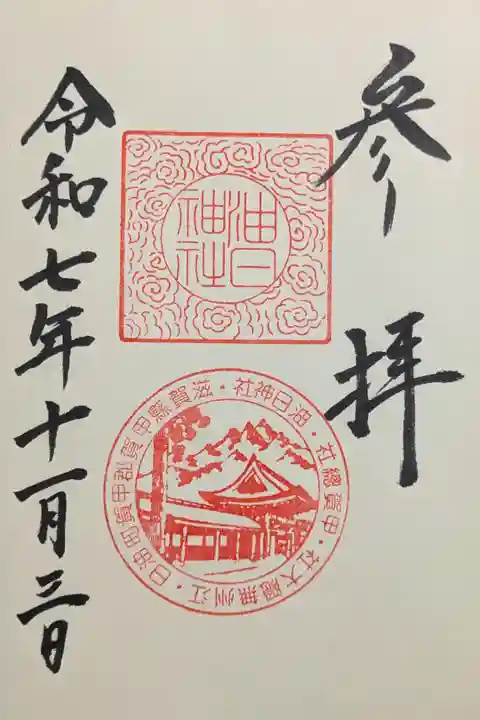 参拝
油日
神社
油日神社・滋賀縣甲賀郡甲賀町油日・江州無隠大社・甲賀総社
令和七年十一月三日